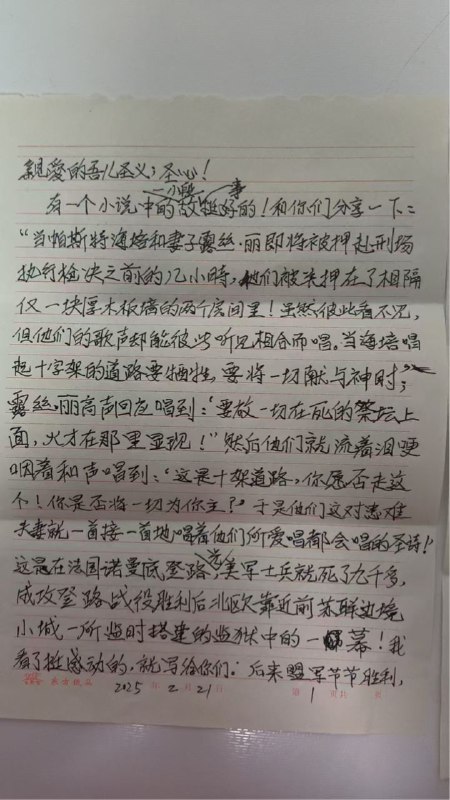 親愛的吾儿圣义；圣心！
有一个小说中的一小段故事挺好的！和你们分享一下：
“当帕斯特海培和妻子露絲·丽即将被押赴刑场
执行枪决之前的几小時，他们被关押在了相隔
仅一块厚木板墙的两个房间里！虽然彼此看不见，
但他们的歌声却能彼此听见相合而唱。当海培唱
起十字架的道路要牺牲，要将一切献与神时；
露絲·丽高声回应唱到：‘要做一切在死的祭坛上
面，火才在那里显现！’然后他们就流着泪哽
咽着和声唱到：‘这是十架道路，你愿否走这
个！你是否将一切为你主？’于是他们这对患难
夫妻就一首接一首地唱着他们所爱唱都会唱的圣诗！”
这是在法国诺曼底登路，美军士兵就死了九千多，
成攻登路战役胜利后北区欠靠近前苏联边境
小城一所监时搭建的监狱中的一幕！我
看了挺感动的，就写给你们：后来盟军节节胜利，
2025年2月21日 第1页共 页